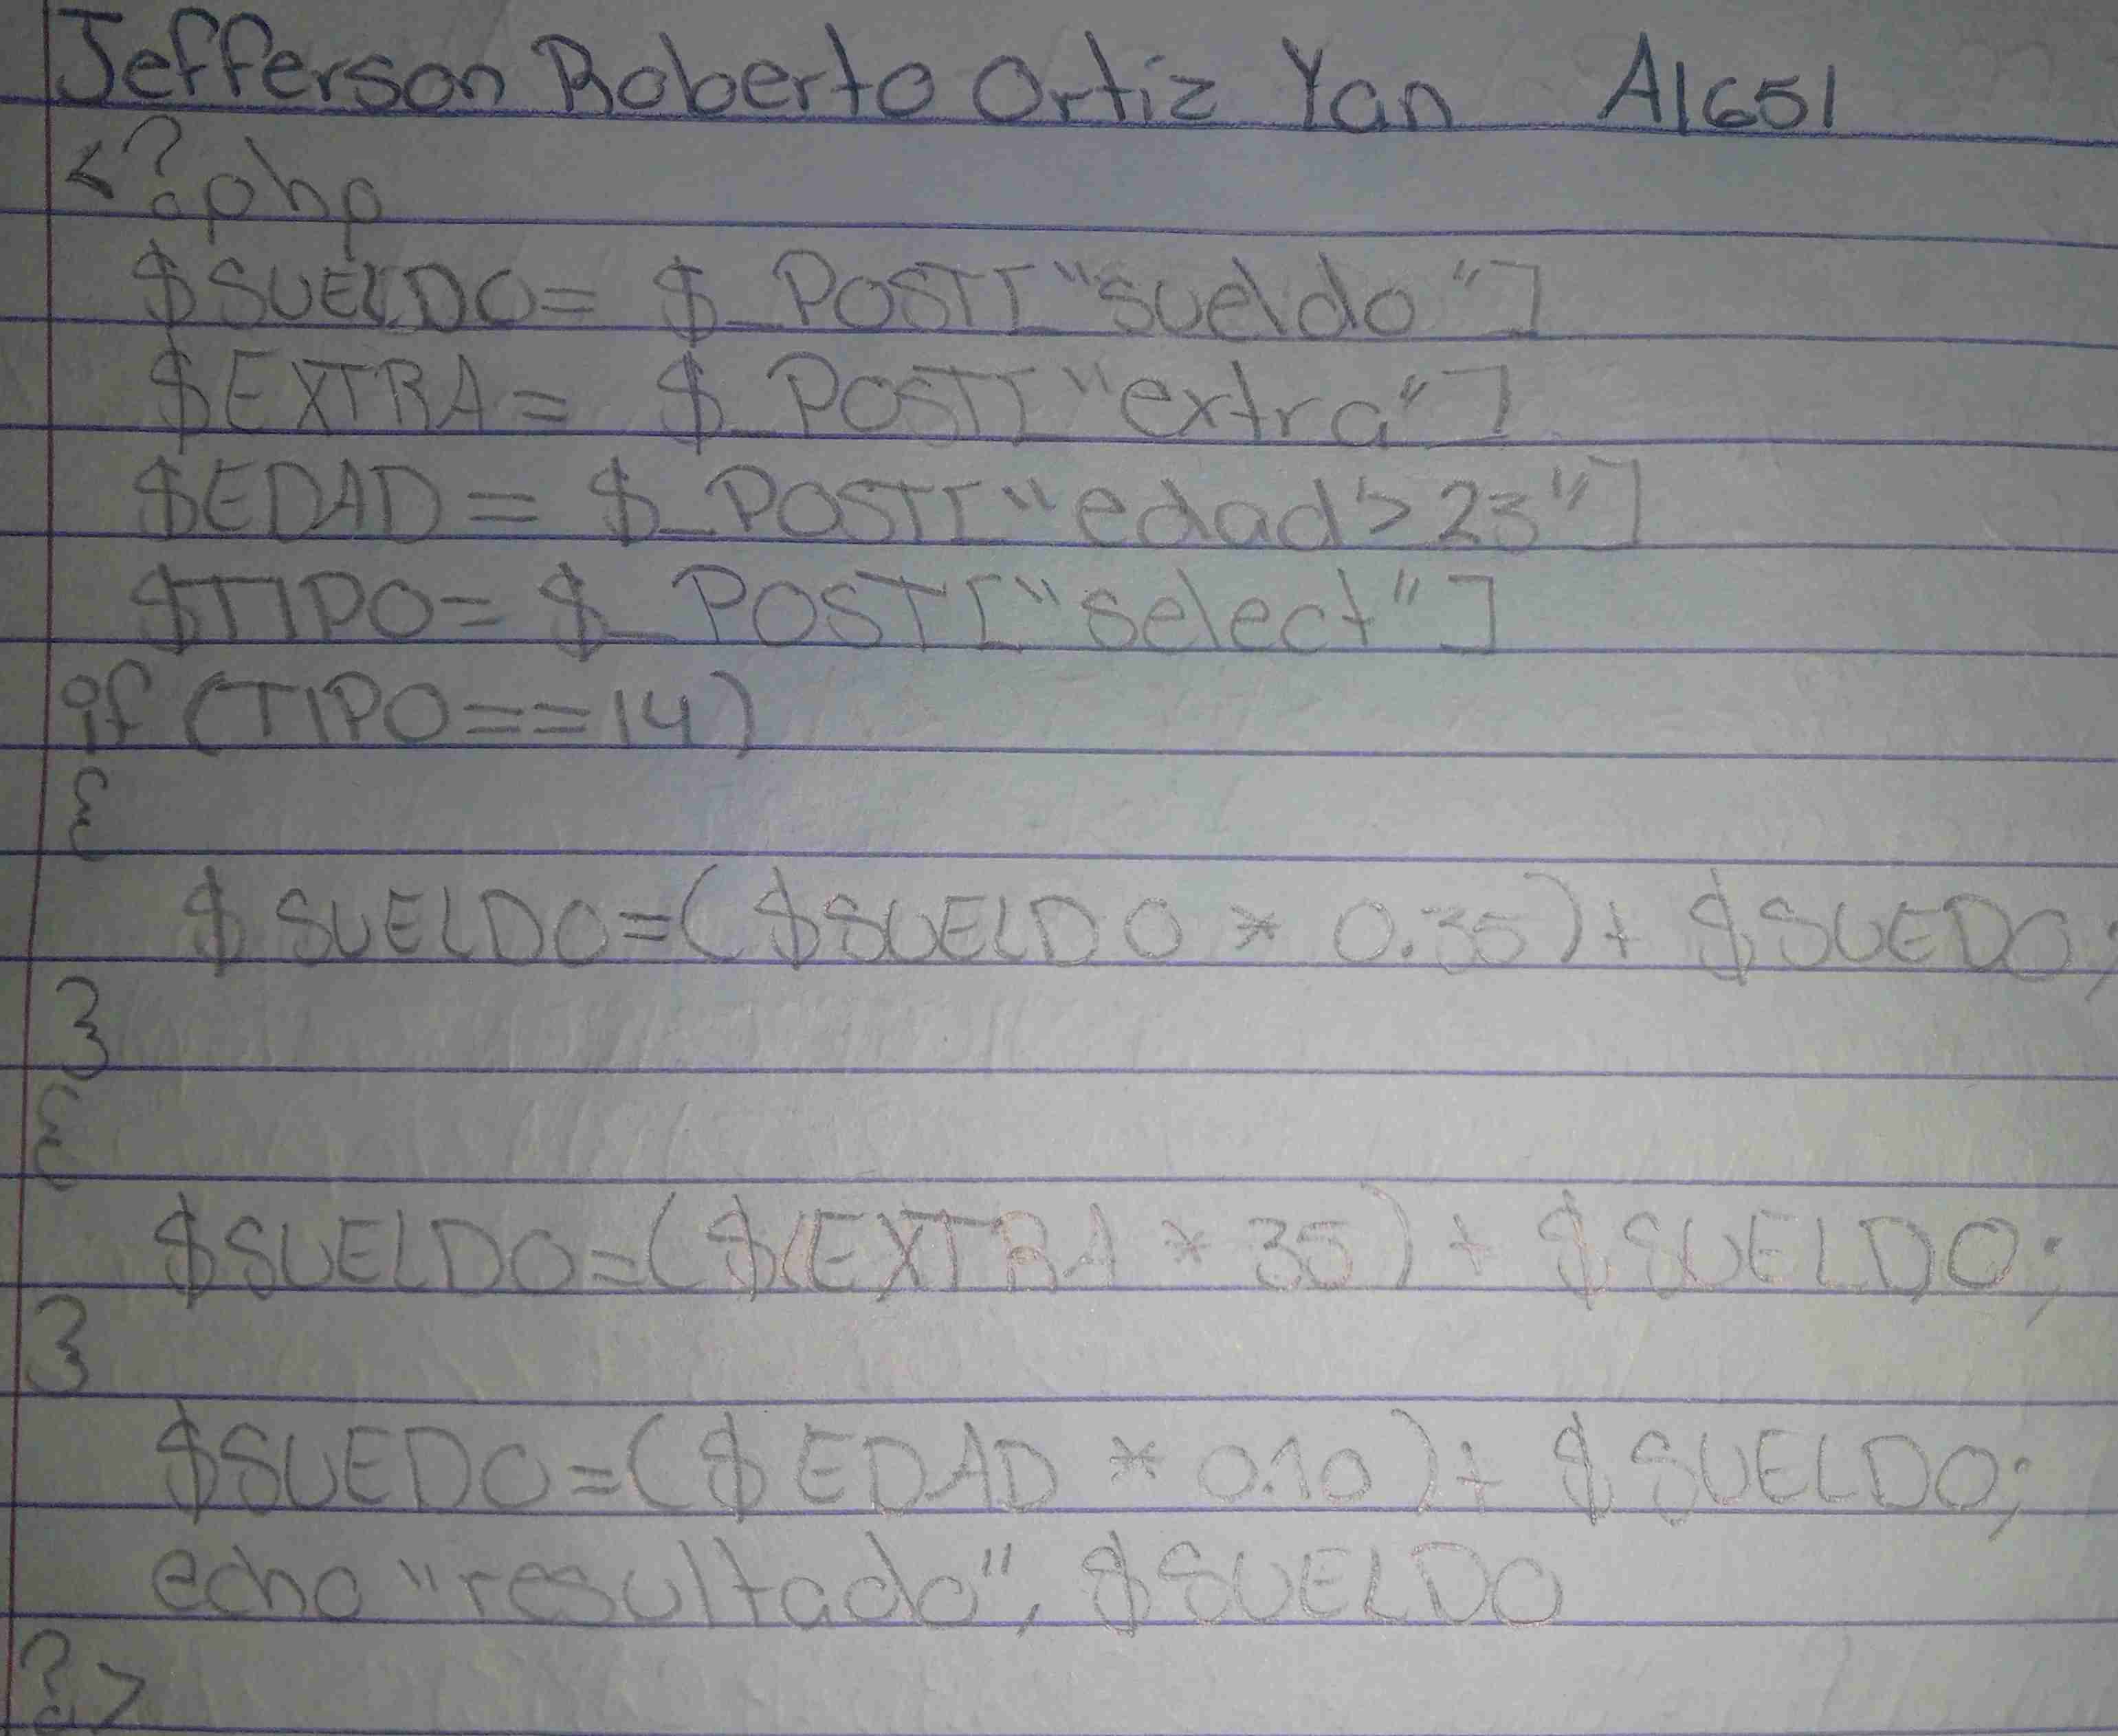 Jefferson Roberto Ortiz Yan A1651
<?php
$SUELDO= $_POST["sueldo"]
$EXTRA= $_POST["extra"]
$EDAD= $_POST["edad>23"]
$TIPO= $_POST["select"]
if (TIPO==14)
{
$SUELDO=($SUELDO * 0.35)+ $SUEDO;
}
{
$SUELDO=($EXTRA * 35)+ $SUELDO;
}
$SUEDO=($EDAD * 0.10)+ $SUELDO;
echo "resultado", $SUELDO
?>